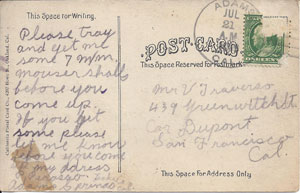 This Space for Writing.
Please tray
and get me
some 7 m/m
mouser shells
before you
come up.
If you get
some please
let me know
before you come
my adress
Springs
ADAMS
JUL
21
A.M.
CAL.
POST CARD
This Space Reserved for Postmark
Mr V Traverso
439 Greenwitch St
Cor Dupont
San Francisco
Cal.
This Space For Address Only